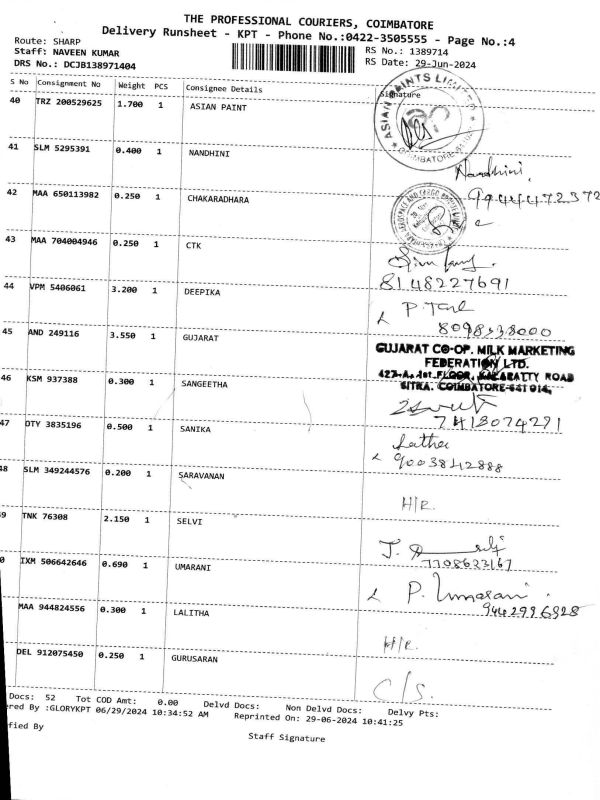 THE PROFESSIONAL COURIERS, COIMBATORE
Delivery Runsheet - KPT - Phone No.:0422-3505555 - Page No.:4
Route: SHARP
RS No.: 1389714
Staff: NAVEEN KUMAR
RS Date: 29-Jun-2024
DRS No.: DCJB138971404
S No Consignment No Weight PCS Consignee Details Signature
40 TRZ 200529625 1.700 1 ASIAN PAINT
ASIAN PAINTS LIMITED
COIMBATORE
41 SLM 5295391 0.400 1 NANDHINI
Nandhini.
9944472372
42 MAA 650113982 0.250 1 CHAKARADHARA
43 MAA 704004946 0.250 1 CTK
8148227691
44 VPM 5406061 3.200 1 DEEPIKA
8098538000
45 AND 249116 3.550 1 GUJARAT
GUJARAT CO-OP. MILK MARKETING
FEDERATION LTD.
427-A, 1st FLOOR, KALAPATTY ROAD
SITRA, COIMBATORE-641 014.
46 KSM 937388 0.300 1 SANGEETHA
7418074271
47 OTY 3835196 0.500 1 SANIKA
Latha
9003842888
48 SLM 349244576 0.200 1 SARAVANAN
H/R.
49 TNK 76308 2.150 1 SELVI
7708623167
0 IXM 506642646 0.690 1 UMARANI
P. Umarani.
9442996928
MAA 944824556 0.300 1 LALITHA
H/R.
DEL 912075450 0.250 1 GURUSARAN
C/S.
Docs: 52 Tot COD Amt: 0.00 Delvd Docs: Non Delvd Docs: Delvy Pts:
ered By :GLORYKPT 06/29/2024 10:34:52 AM Reprinted On: 29-06-2024 10:41:25
ified By
Staff Signature